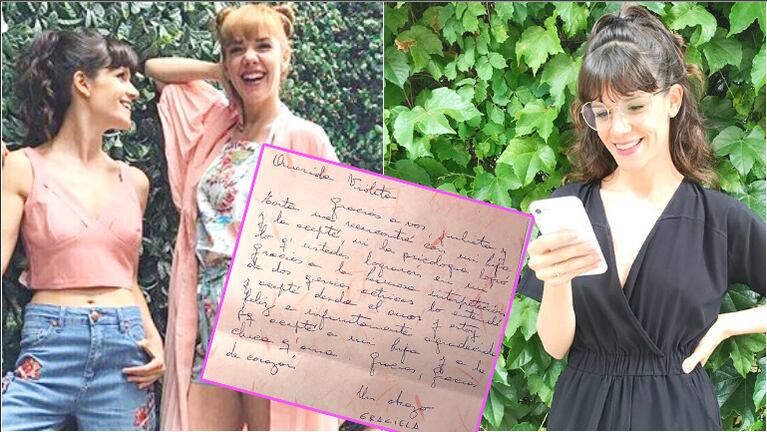 Querida Violeta
Gracias a vos, Julieta y
Flor me reencontré con mi hija
y la acepté ni la psicóloga logró
lo q' ustedes lograron en mi
gracias a la hermosa interpretación
de dos genias actrices, lo entendí
y acepté desde el amor y estoy
feliz e infinitamente agradecida
pq acepté a mi hija y a la
chica q' ama. Gracias, gracias
de corazón
Un abrazo
GRACIELA